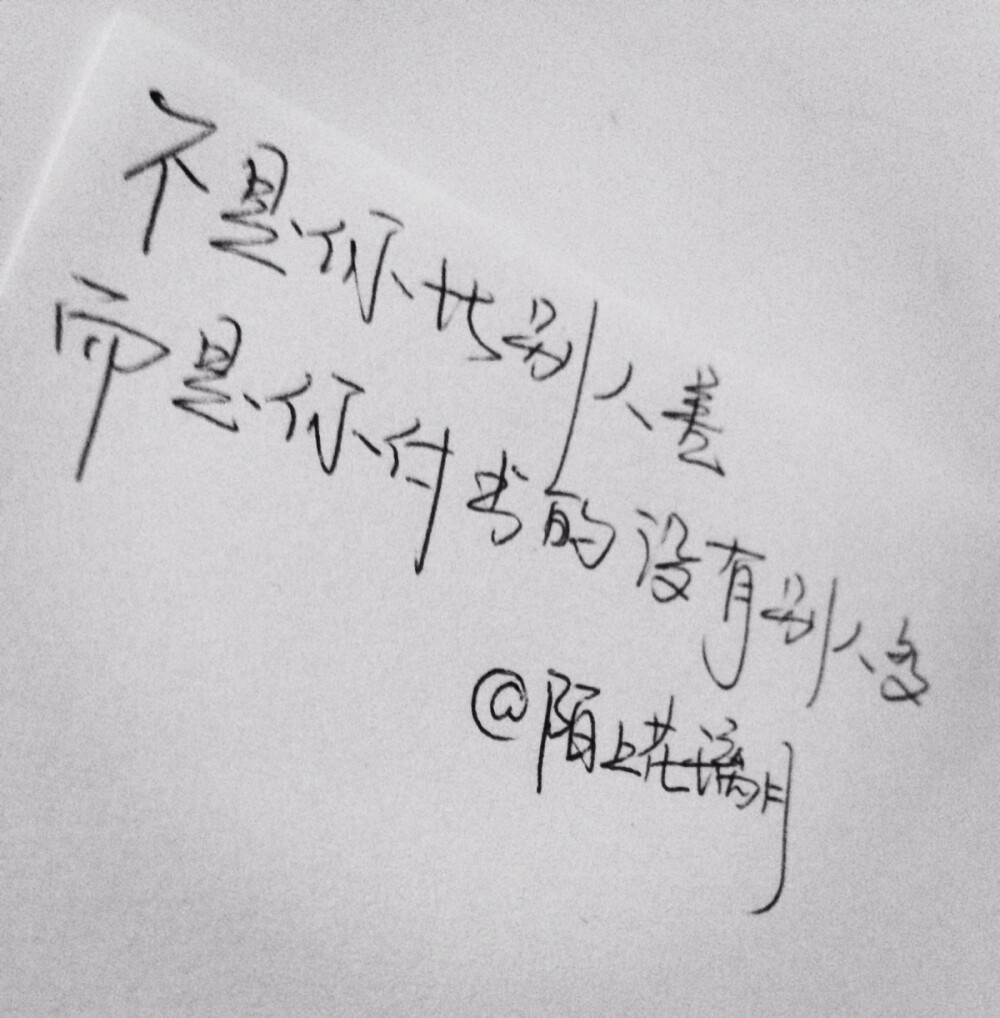 不是你比别人差
而是你付出的没有别人多
@陌上花满月